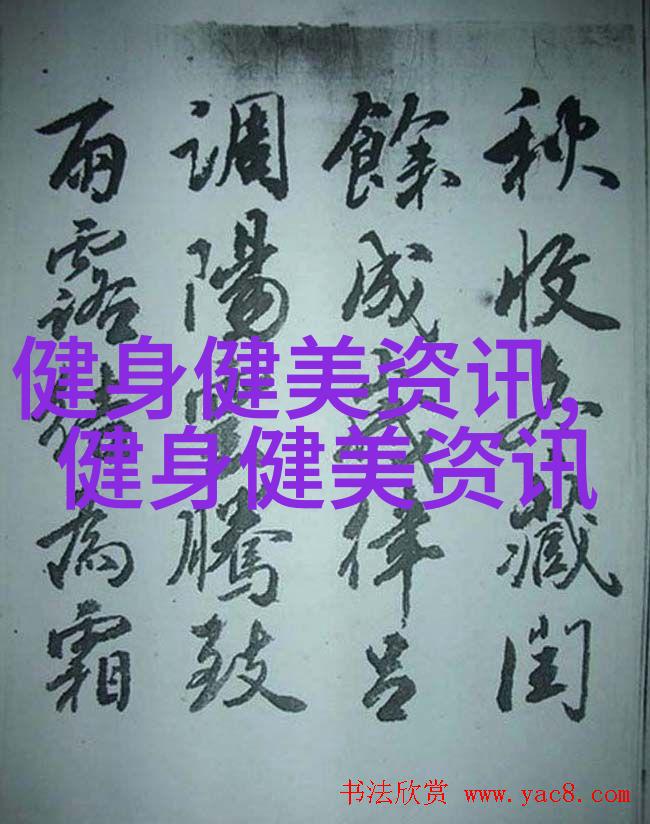 秋收冬藏閏
餘成歲律吕
調陽雲騰致
雨露結為霜
健身健美资讯,
健身健美资讯
书法欣赏 www.yac8.com